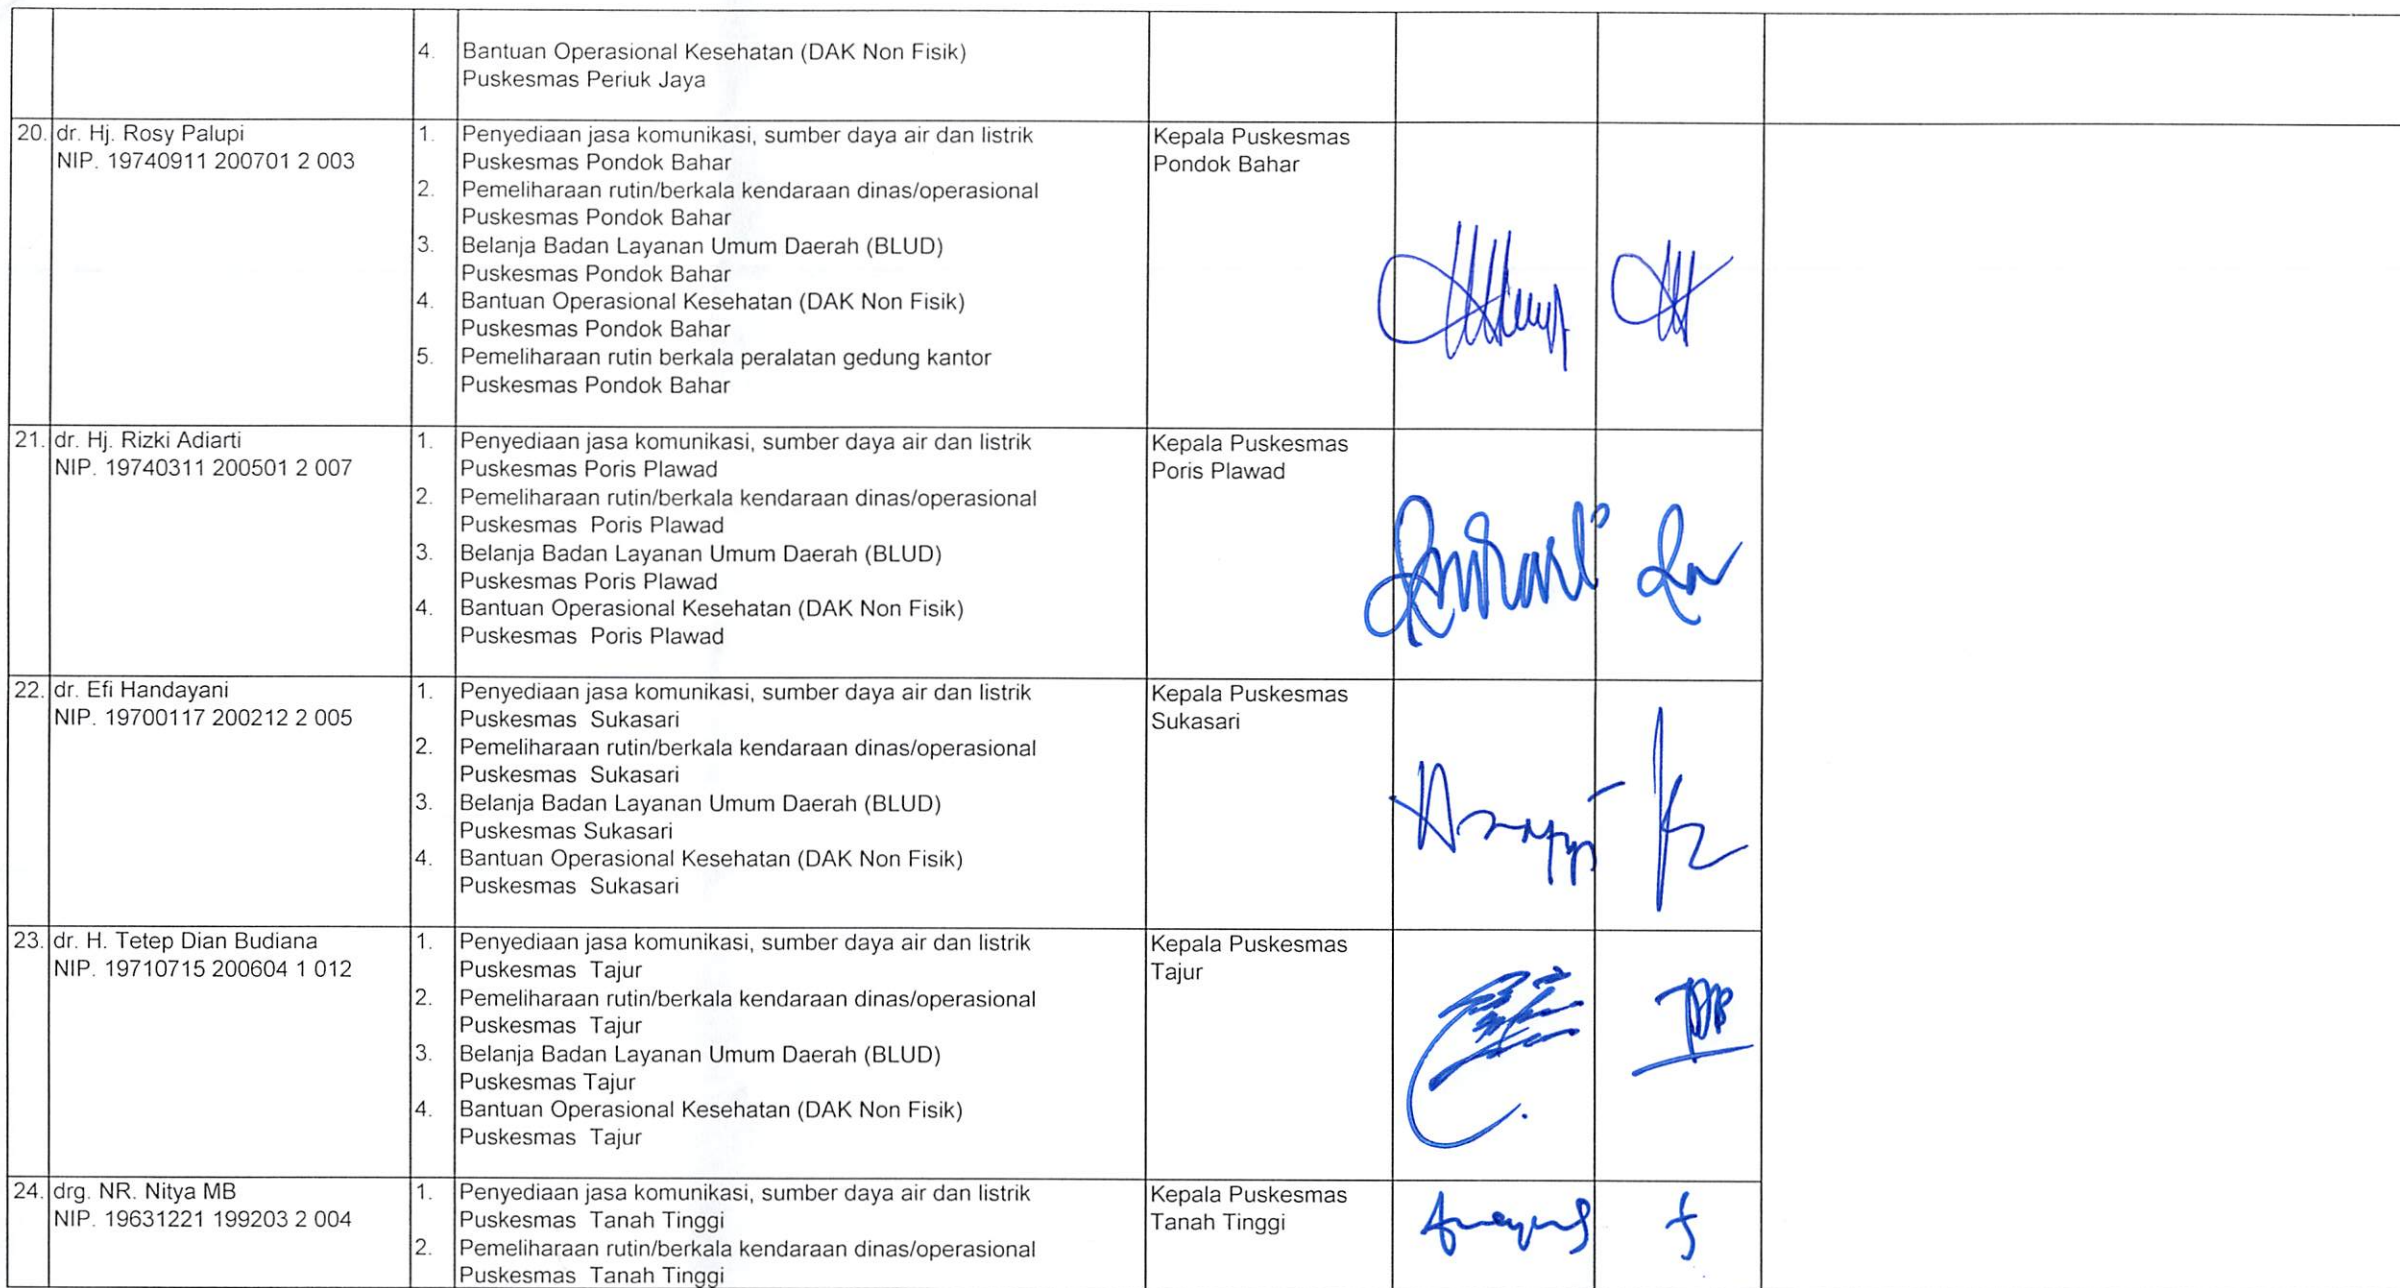 4. Bantuan Operasional Kesehatan (DAK Non Fisik)
Puskesmas Periuk Jaya
20. dr. Hj. Rosy Palupi
NIP. 19740911 200701 2 003
1. Penyediaan jasa komunikasi, sumber daya air dan listrik
Puskesmas Pondok Bahar
2. Pemeliharaan rutin/berkala kendaraan dinas/operasional
Puskesmas Pondok Bahar
3. Belanja Badan Layanan Umum Daerah (BLUD)
Puskesmas Pondok Bahar
4. Bantuan Operasional Kesehatan (DAK Non Fisik)
Puskesmas Pondok Bahar
5. Pemeliharaan rutin berkala peralatan gedung kantor
Puskesmas Pondok Bahar
Kepala Puskesmas
Pondok Bahar
21. dr. Hj. Rizki Adiarti
NIP. 19740311 200501 2 007
1. Penyediaan jasa komunikasi, sumber daya air dan listrik
Puskesmas Poris Plawad
2. Pemeliharaan rutin/berkala kendaraan dinas/operasional
Puskesmas Poris Plawad
3. Belanja Badan Layanan Umum Daerah (BLUD)
Puskesmas Poris Plawad
4. Bantuan Operasional Kesehatan (DAK Non Fisik)
Puskesmas Poris Plawad
Kepala Puskesmas
Poris Plawad
22. dr. Efi Handayani
NIP. 19700117 200212 2 005
1. Penyediaan jasa komunikasi, sumber daya air dan listrik
Puskesmas Sukasari
2. Pemeliharaan rutin/berkala kendaraan dinas/operasional
Puskesmas Sukasari
3. Belanja Badan Layanan Umum Daerah (BLUD)
Puskesmas Sukasari
4. Bantuan Operasional Kesehatan (DAK Non Fisik)
Puskesmas Sukasari
Kepala Puskesmas
Sukasari
23. dr. H. Tetep Dian Budiana
NIP. 19710715 200604 1 012
1. Penyediaan jasa komunikasi, sumber daya air dan listrik
Puskesmas Tajur
2. Pemeliharaan rutin/berkala kendaraan dinas/operasional
Puskesmas Tajur
3. Belanja Badan Layanan Umum Daerah (BLUD)
Puskesmas Tajur
4. Bantuan Operasional Kesehatan (DAK Non Fisik)
Puskesmas Tajur
Kepala Puskesmas
Tajur
24. drg. NR. Nitya MB
NIP. 19631221 199203 2 004
1. Penyediaan jasa komunikasi, sumber daya air dan listrik
Puskesmas Tanah Tinggi
2. Pemeliharaan rutin/berkala kendaraan dinas/operasional
Puskesmas Tanah Tinggi
Kepala Puskesmas
Tanah Tinggi